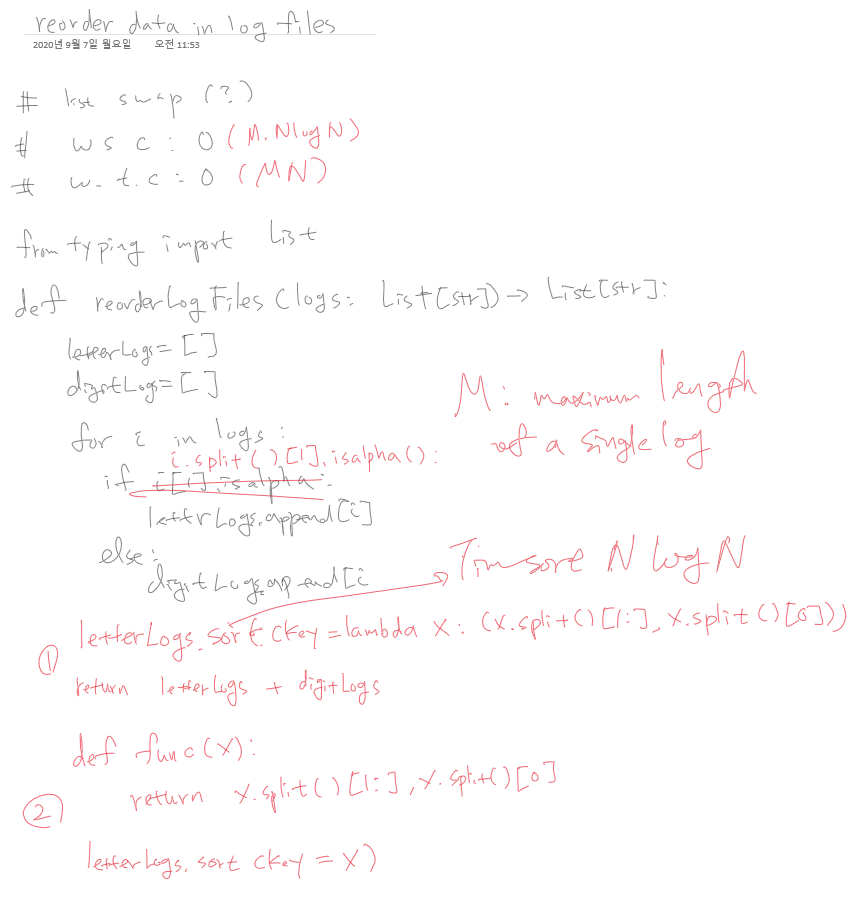 reorder data in log files
2020년 9월 7일 월요일 오전 11:53
# list swap (?)
# w s c : O (M.NlogN)
# w. t. c : O (MN)
from typing import List
def reorderLogFiles (logs: List[str]) → List[str]:
letterLogs = []
digitLogs = []
for i in logs :
i.split()[1].isalpha():
if i[1].isalpha:
letterLogs.append[i]
else:
digitLogs.append[i
M : maximum length
of a single log
Timsort N log N
① letterLogs.sort (key = lambda x : (x.split()[1:], x.split()[0]))
return letterLogs + digitLogs
def func(x):
② return x.split()[1:], x.split()[0]
letterLogs.sort (key = x)